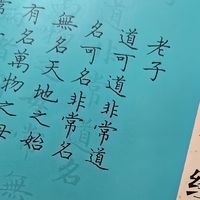 老子
道可道非常道
名可名非常名
無名天地之始
有名萬物之母